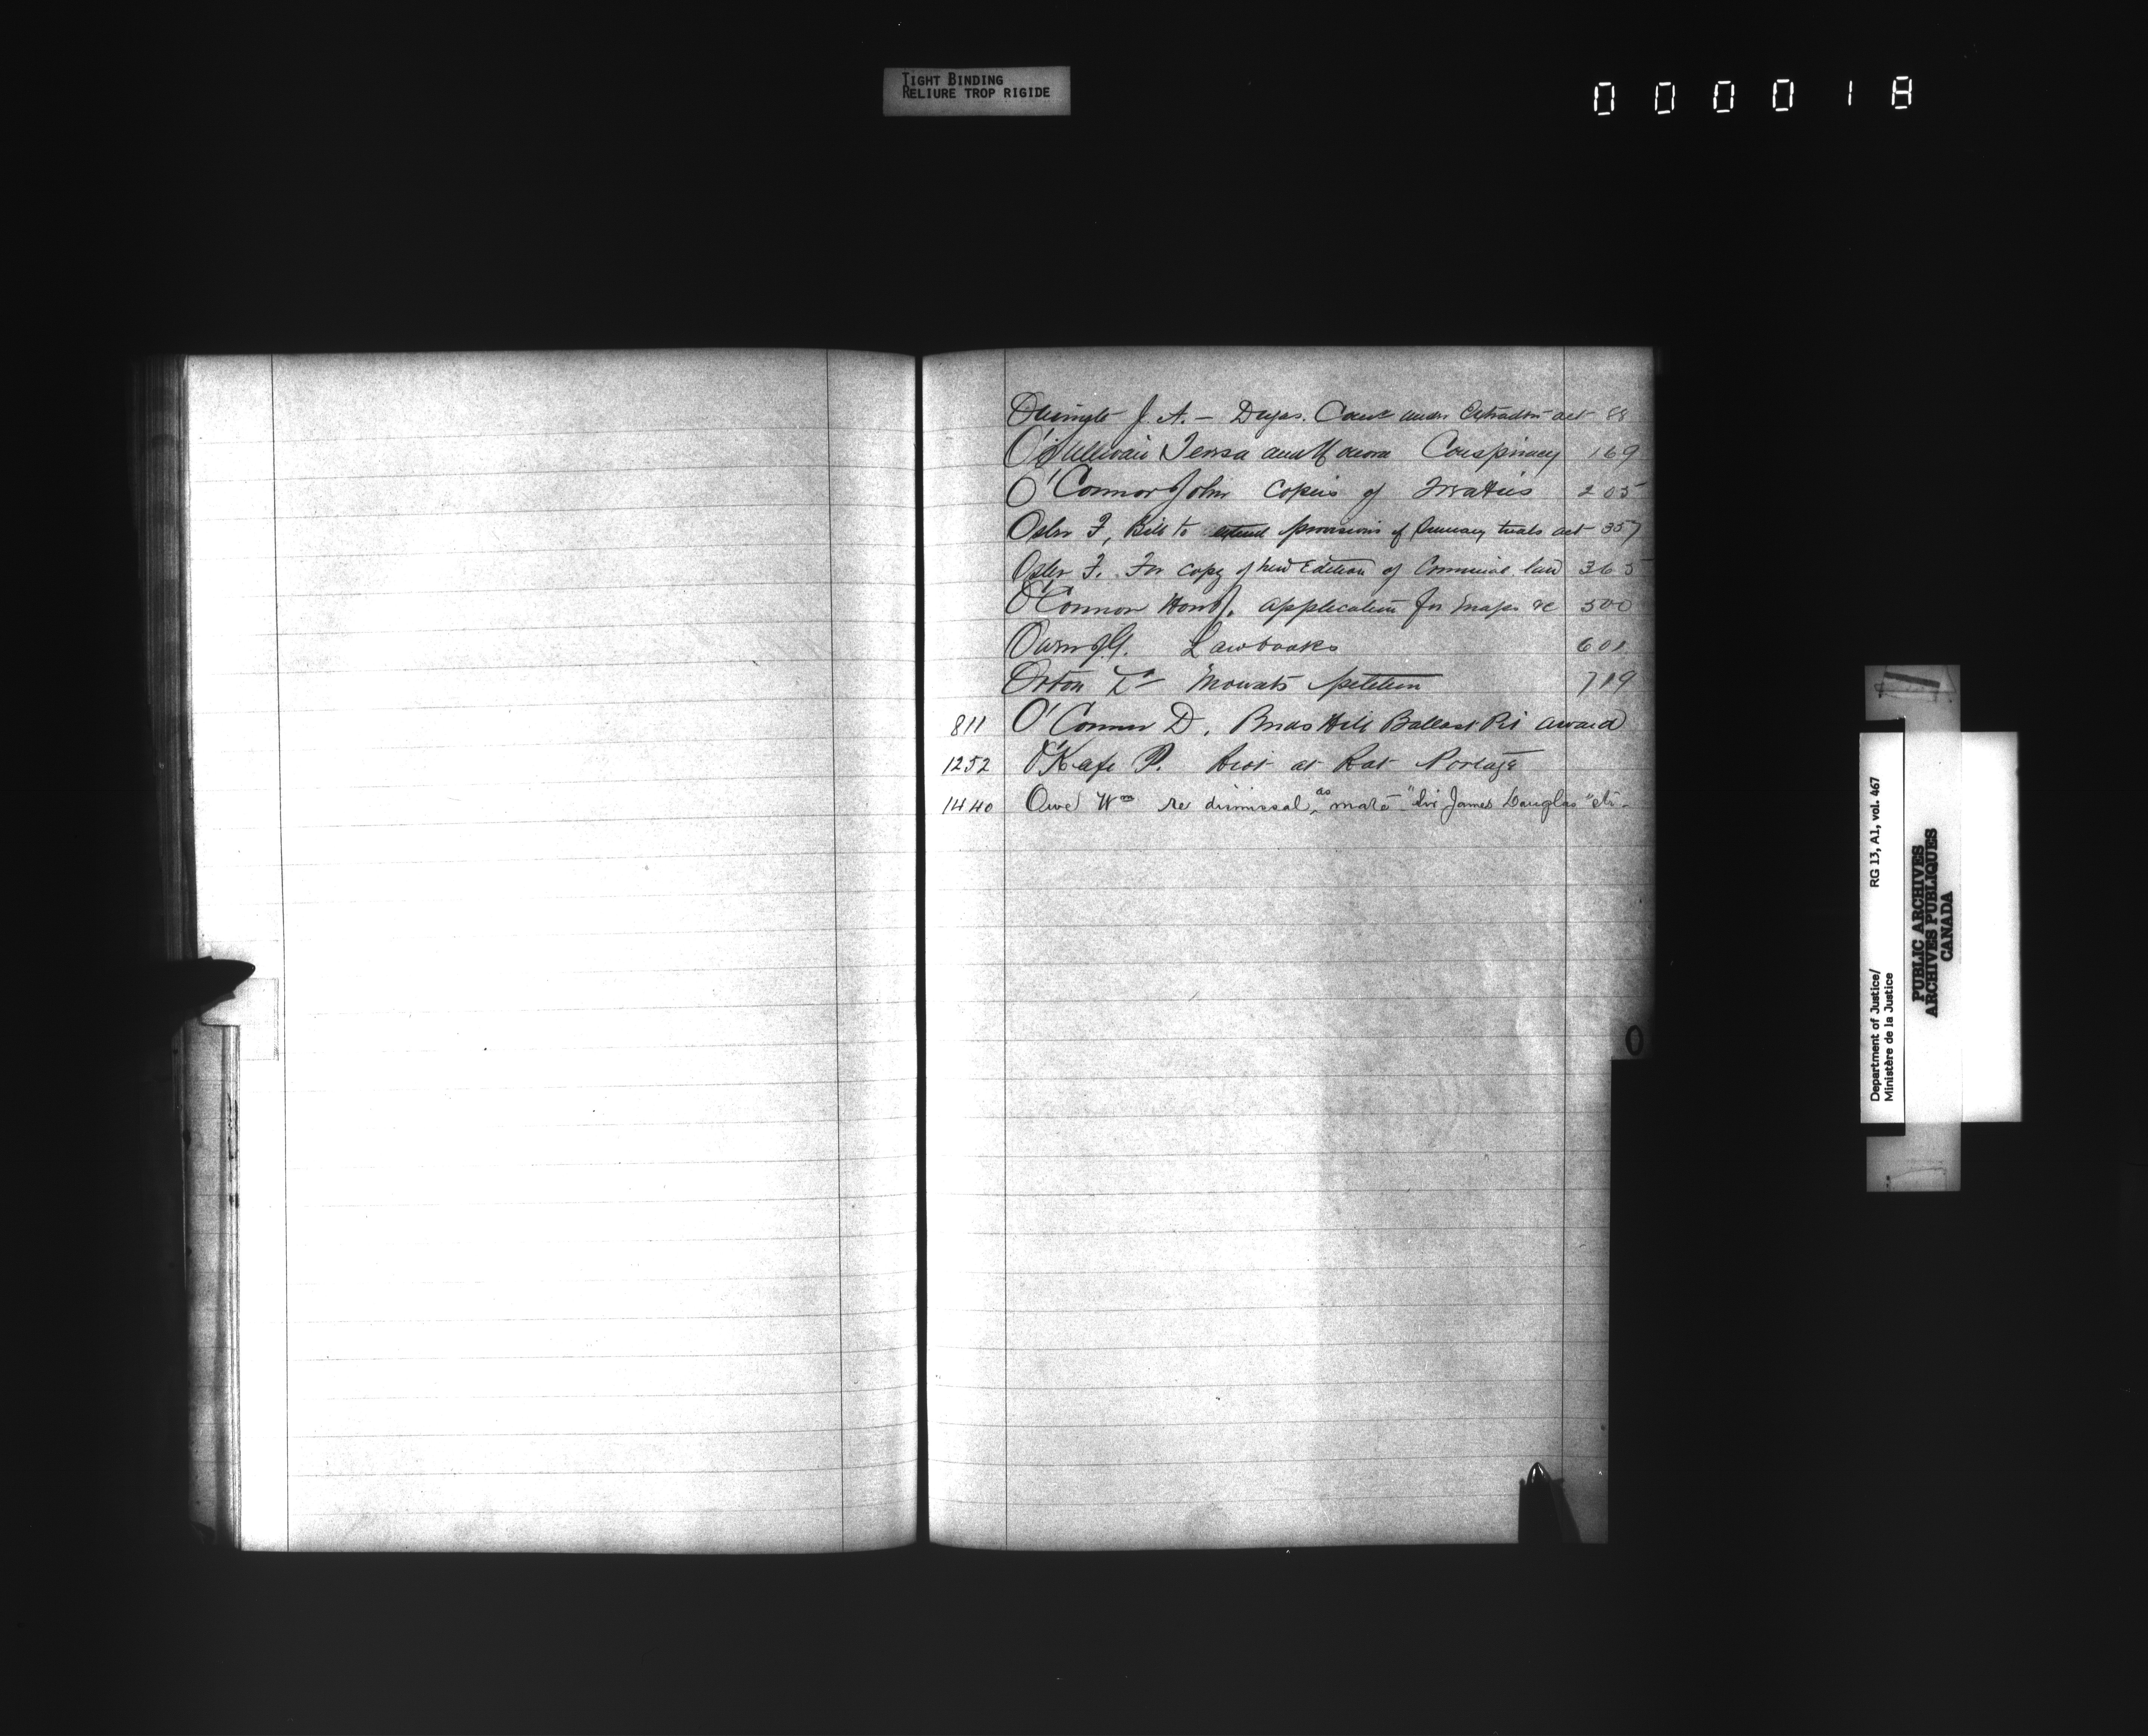 TIGHT BINDING
RELIURE TROP RIGIDE
000018
Ouimet J. A. – Dugas. Court under Extradtn act
O'Sullivan Teresa and Honora Conspiracy 169
O'Connor John Copies of Treaties 205
Osler F, Bill to extend provisions of Summary trials act 357
Osler F. For copy of new Edition of Criminal law 365
O'Connor Hon J. application for maps &c 500
Lawbooks 601
Orton Dr Mowats petition 719
811 O'Connor D. Hill Ballast award
1252 O'Kafe P. Riot at Rat Portage
1440 Owe Wm re dismissal, as mate "Sir James Douglas" etc.
O
Department of Justice/ RG 13, A1, vol. 467
Ministère de la Justice
PUBLIC ARCHIVES
ARCHIVES PUBLIQUES
CANADA